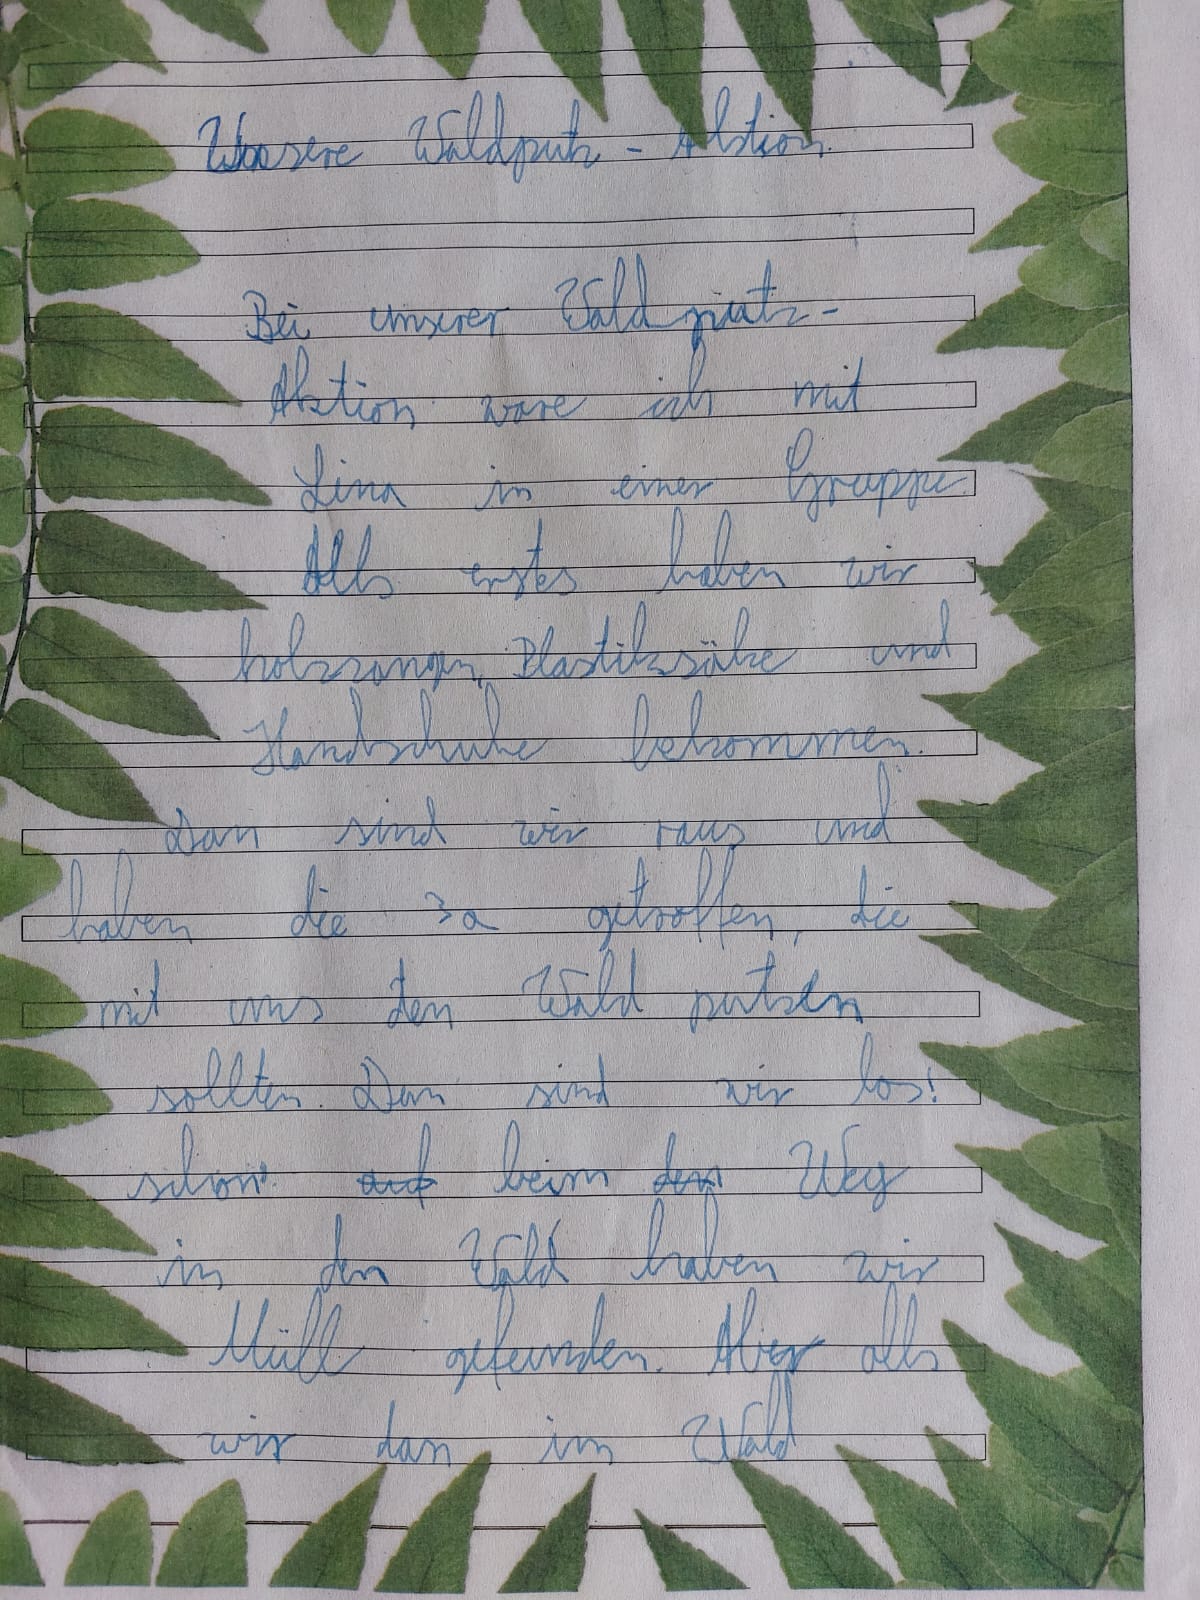 Unsere Waldputz-Aktion.
Bei unserer Waldputz-
Aktion ware ich mit
Lina in einer Gruppe.
Alls erstes haben wir
holzzangen, Plastiksäke und
Handschuhe bekommen.
Dan sind wir raus und
haben die 3a getroffen, die
mit uns den Wald putzen
sollten. Dan sind wir los!
schon auf beim den Weg
in den Wald haben wir
Müll gefunden. Aber alls
wir dan im Wald